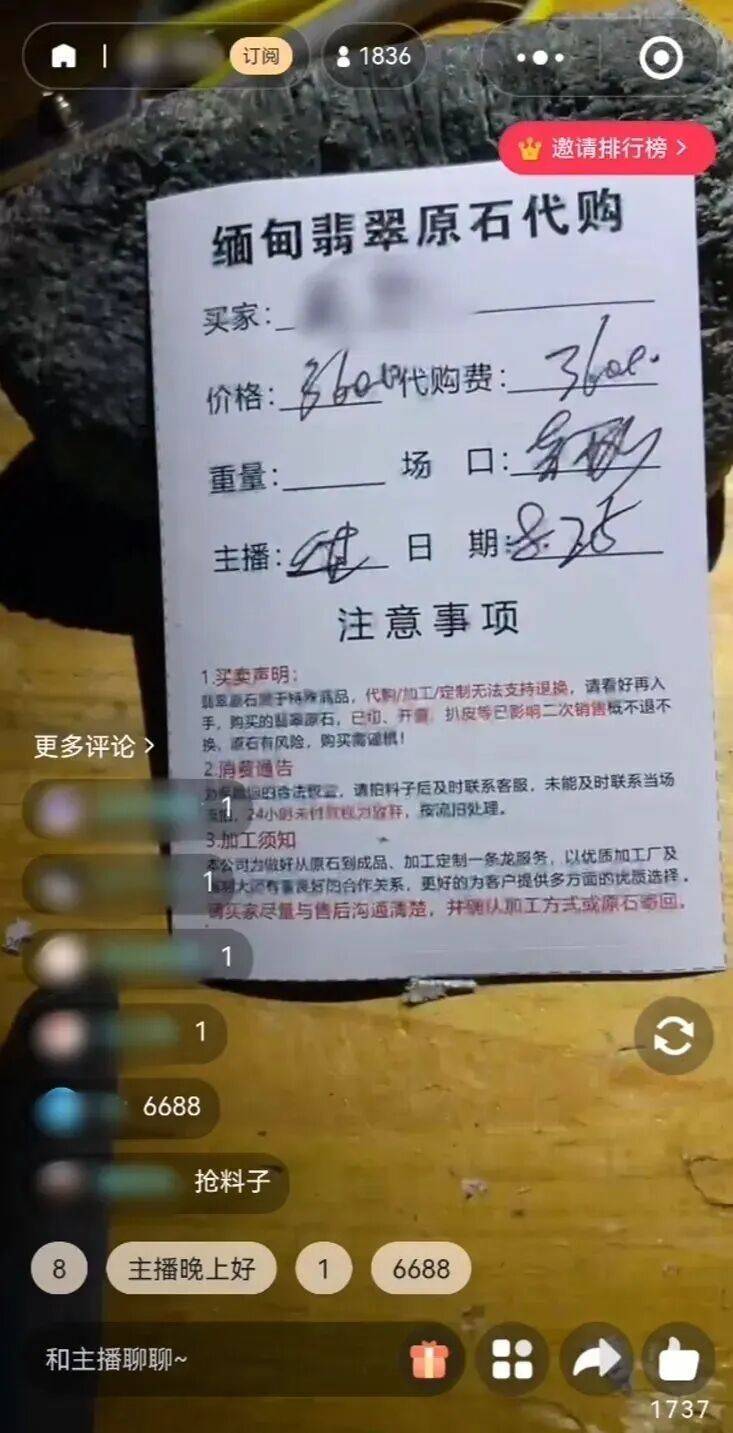 订阅
1836
邀请排行榜
缅甸翡翠原石代购
买家:
价格: 代购费:
重量: 场 口:
主播: 日 期: 8.25
注意事项
1.买卖声明:
翡翠原石属于特殊商品，代购/加工/定制无法支持退换，请看好再入
手，购买的翡翠原石，已切、开窗、扒皮等已影响二次销售概不退不
换，原石有风险，购买需谨慎!
2.消费通告
的合法权益，请拍料子后及时联系客服，未能及时联系当场
24小时未付款视为放弃，按流拍处理。
3.加工须知
本公司力做好从原石到成品、加工定制一条龙服务，以优质加工厂及
有着良好的合作关系，更好的为客户提供多方面的优质选择。
请买家尽量与售后沟通清楚，并确认加工方式或原石寄回。
更多评论
1
1
1
1
6688
抢料子
8 主播晚上好 1 6688
和主播聊聊~
1737